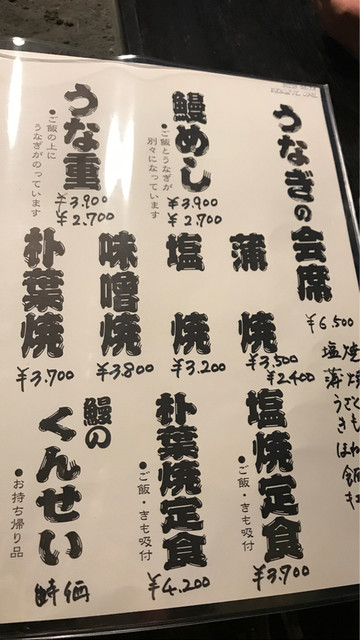 うなぎの会席
¥6,500
塩焼
蒲焼
うざく
きも
ほね
鰻めし
●ご飯とうなぎが
別々になっています
¥3,900
¥2,700
うな重
●ご飯の上に
うなぎがのっています
¥3,900
¥2,700
蒲焼
¥3,500
¥2,400
塩焼
¥3,200
味噌焼
¥3,800
朴葉焼
¥3,700
塩焼定食
●ご飯・きも吸付
¥3,900
朴葉焼定食
●ご飯・きも吸付
¥4,200
鰻の
くんせい
●お持ち帰り品
時価